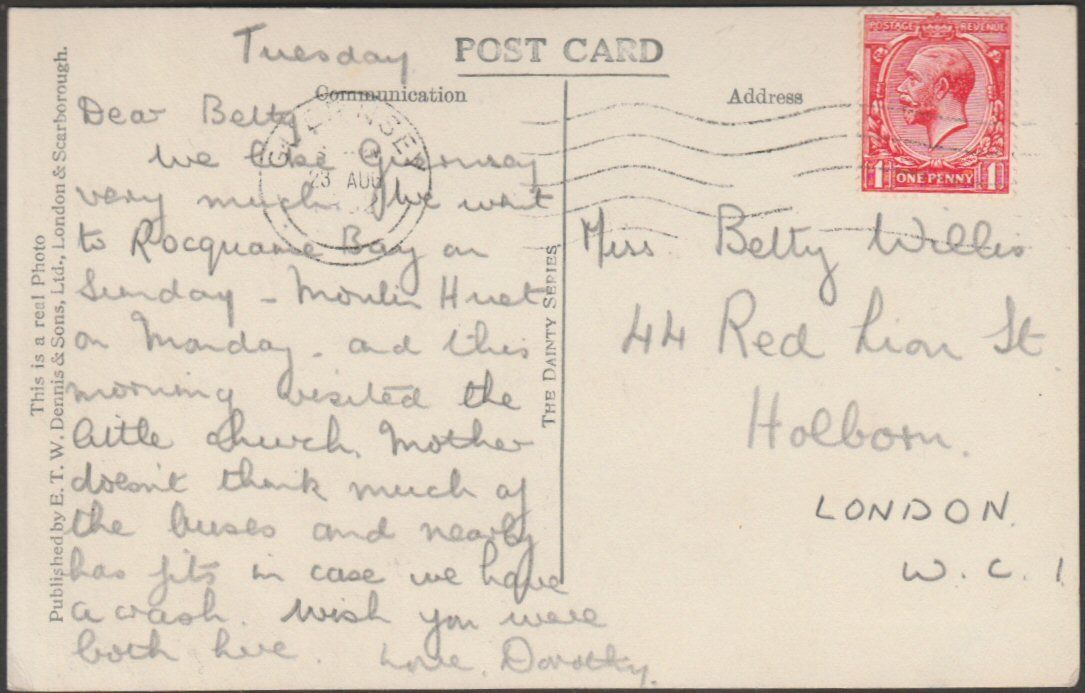 POST CARD
Tuesday
Communication
Address
Dear Betty
We like Guernsey
very much. We went
to Rocquaine Bay on
Sunday - Moulin Huet
on Monday - and this
morning visited the
little church. Mother
doesn't think much of
the buses and nearly
has fits in case we have
a crash. Wish you were
both here. Love, Dorothy.
GUERNSEY
23 AUG
POSTAGE REVENUE
1 ONE PENNY 1
Miss Betty Willis
44 Red Lion St
Holborn.
LONDON.
W. C. 1
THE DAINTY SERIES
This is a real Photo
Published by E. T. W. Dennis & Sons, Ltd., London & Scarborough.